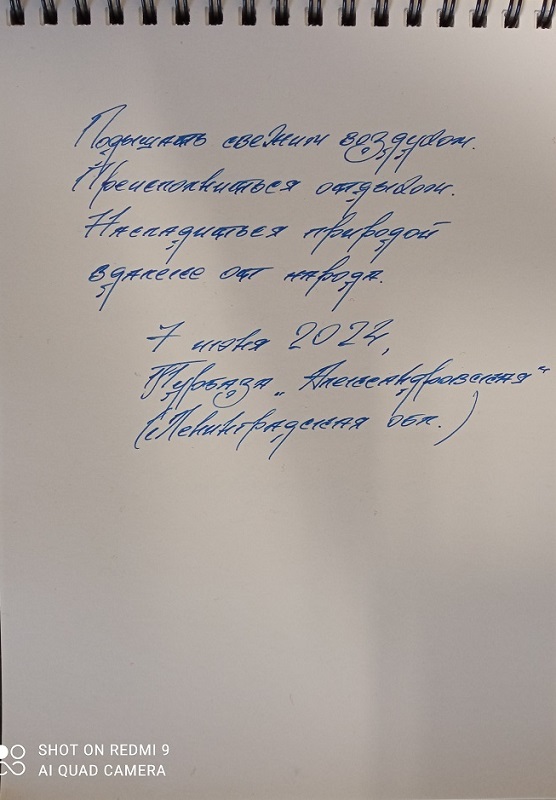 Подышать свежим воздухом.
Преисполниться отдыхом.
Насладиться природой
вдалеке от народа.
7 июня 2022,
Турбаза „Александровская“
(Ленинградская обл.)
SHOT ON REDMI 9
AI QUAD CAMERA